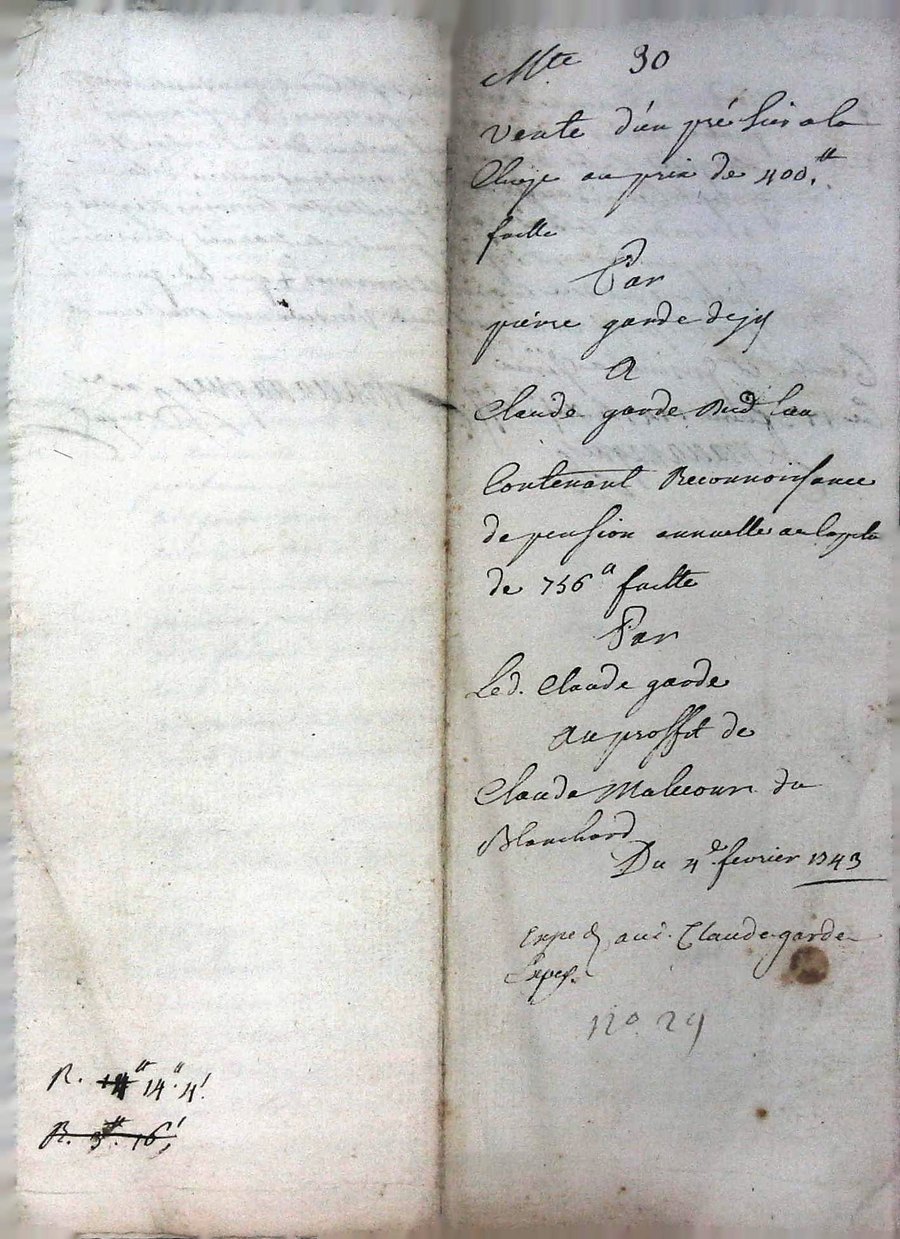 Mte 30
vente d'un pré sis a la
au prix de 400.tt
faitte
Par
pierre garde dejy
A
Claude garde Bud
Contenant Reconnoissance
de pension annuelle
de 756tt faitte
Par
Led. Claude garde
au proffit de
Claude Malecour du
Blanchard
Du 4e fevrier 1743
Exped aud. Claude garde
Exped.
no. 29
R. 14tt. 4s
R. 3tt. 16s